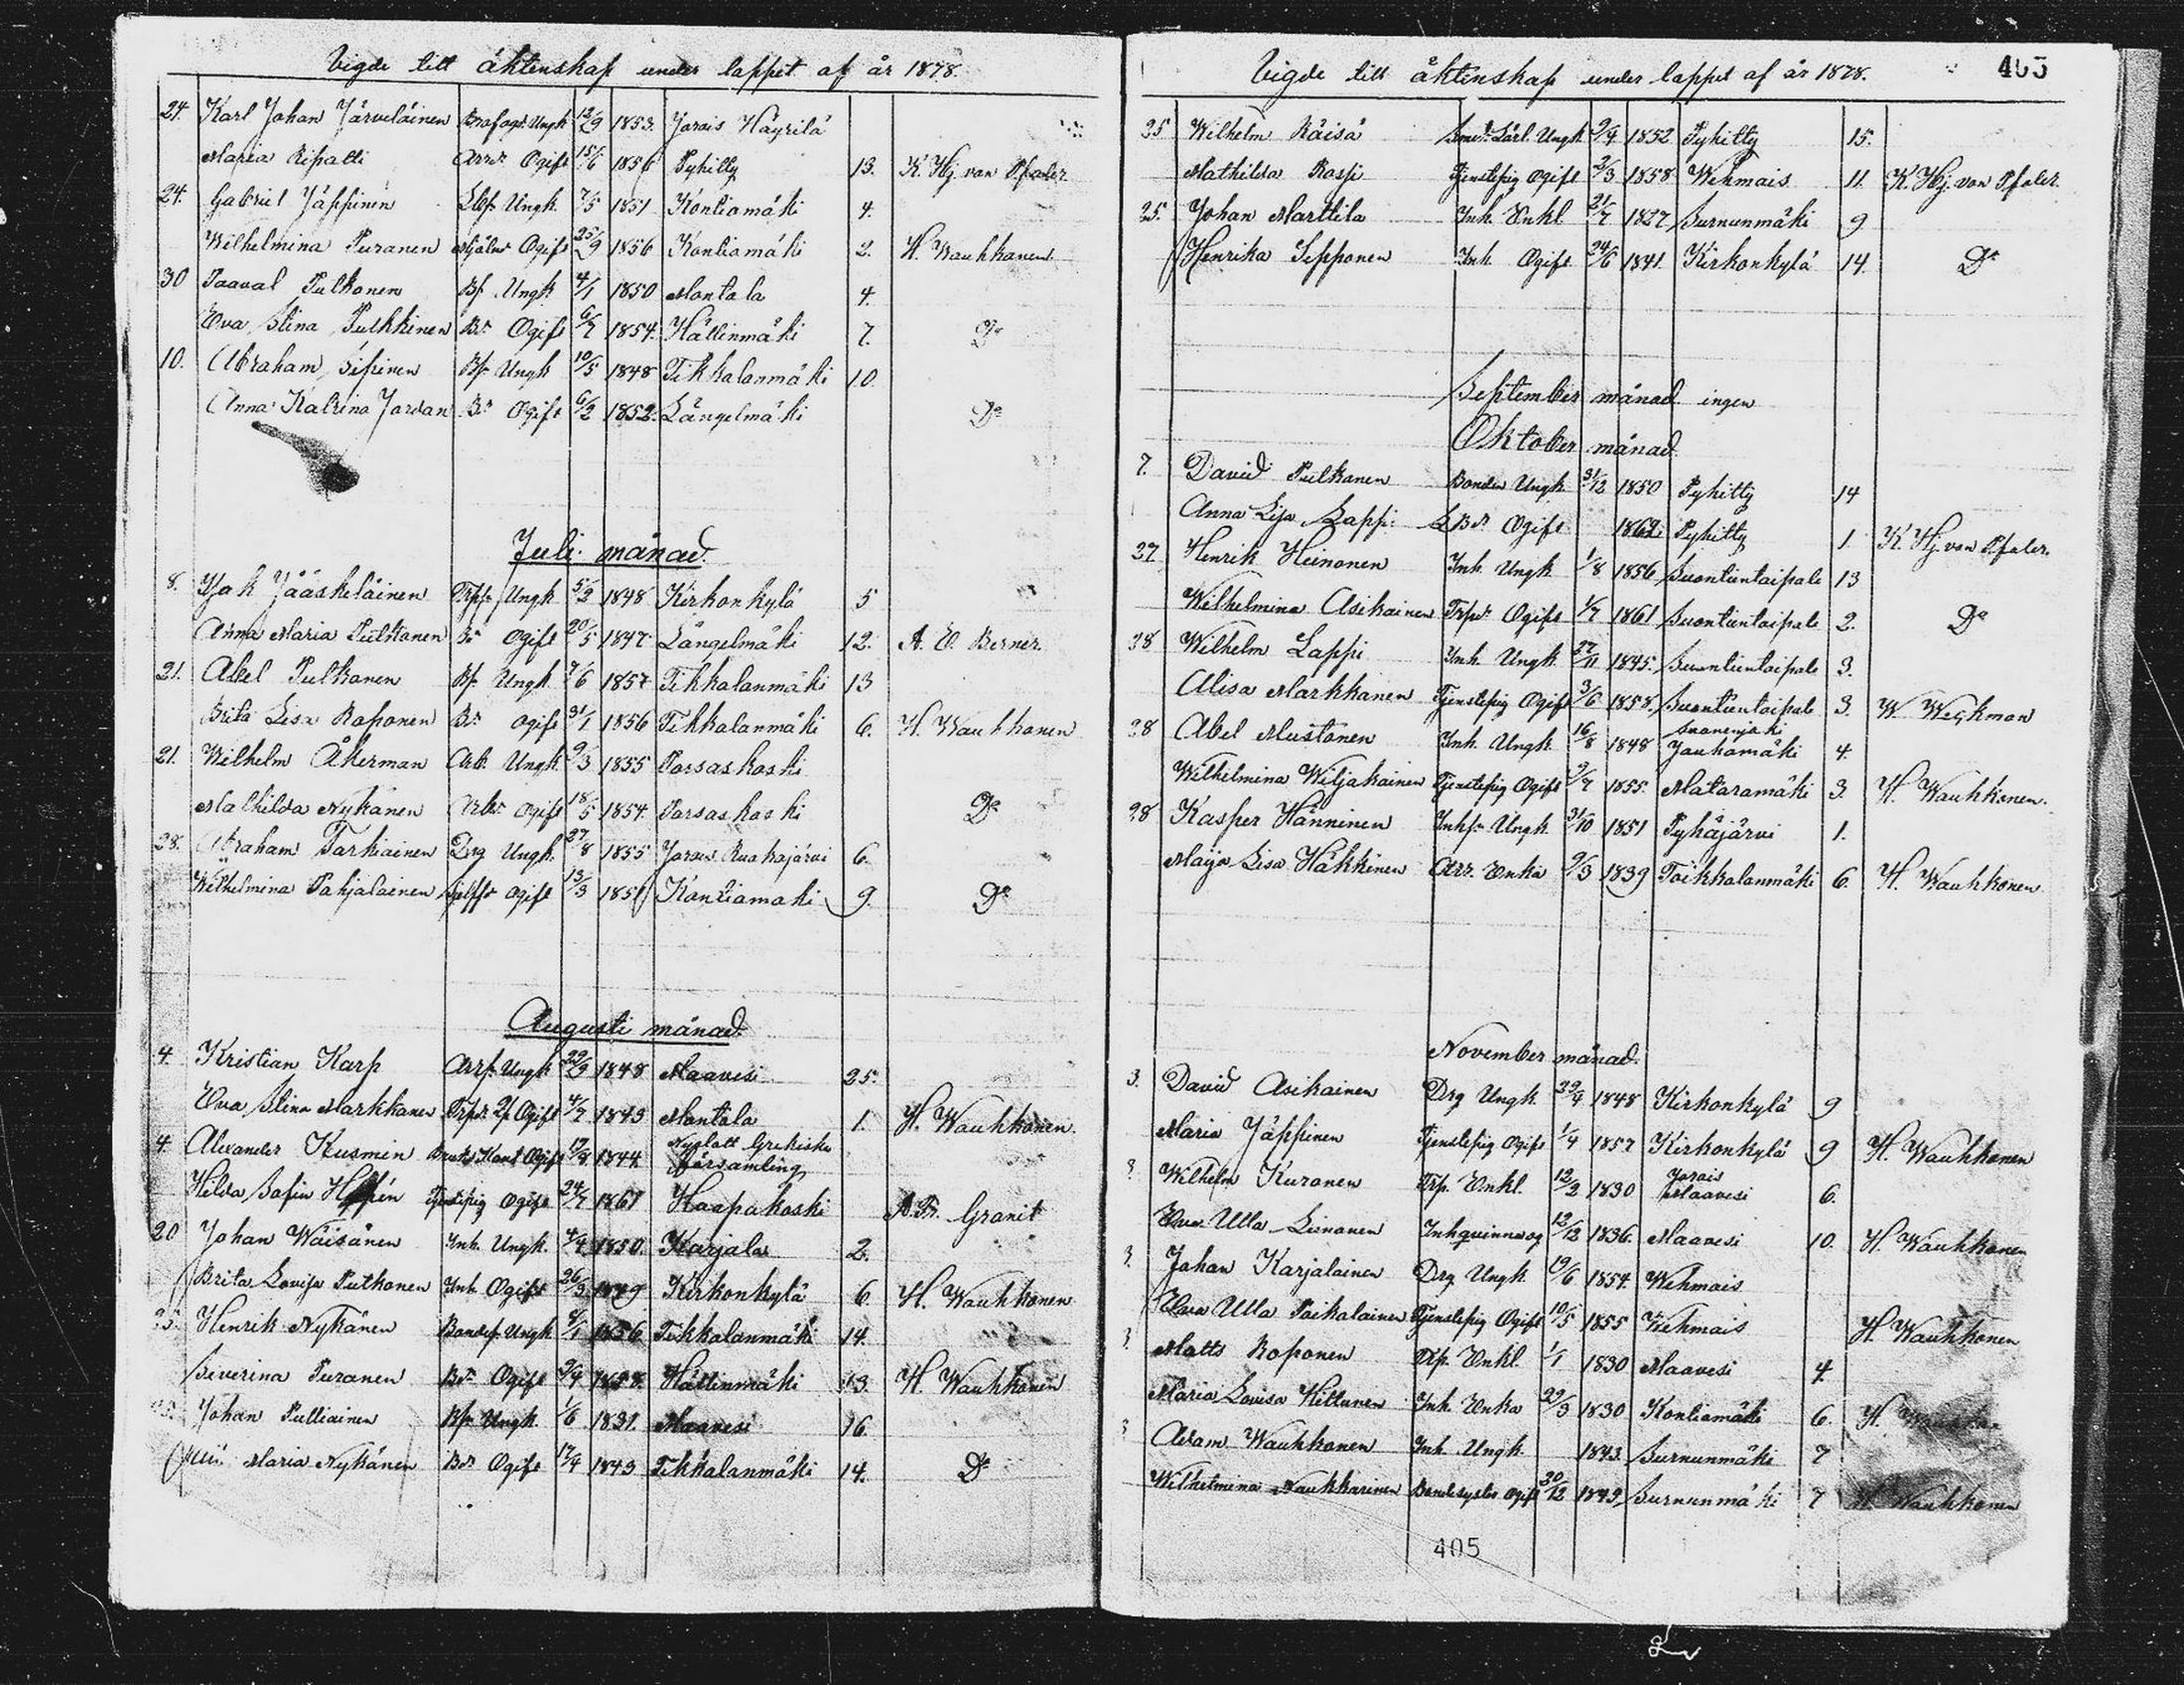 Vigde till äktenskap under loppet af år 1878.
24. Karl Johan Järveläinen Ungk 12/9 1853. Jorois Häyrilä
Maria Ripatti Ogift 15/6 1856 Pyhitty 13. K. Hj. von Pfaler
24. Gabriel Jäppinen Ungk. 7/5 1851 Kontiomäki 4.
Wilhelmina Puranen Ogift 25/9 1856 Kontiomäki 2. H. Wauhkonen
30 Paaval Pulkonen Bs. Ungk 4/1 1850 Montola 4.
Eva Stina Pulkkinen Bdr Ogift 6/7 1854. Hällinmäki 7. Do
10. Abraham Sipinen Bs. Ungk 10/5 1848 Tikkalanmäki 10.
Anna Katrina Jordan Bdr Ogift 6/2 1852. Längelmäki Do
Juli månad.
8. Isak Jääskeläinen Ungk 5/2 1848 Kirkonkylä 5
Anna Maria Pulkonen Bdr Ogift 20/5 1847 Längelmäki 12. A. E. Berner.
21. Abel Pulkonen Bs. Ungk. 7/6 1857 Tikkalanmäki 13
Brita Lisa Roponen Bdr ogift 31/1 1856 Tikkalanmäki 6. H. Wauhkonen
21. Wilhelm Åkerman Arb. Ungk. 9/3 1855 Porsaskoski
Mathilda Nykänen Arb. Ogift 18/5 1854. Porsaskoski Do
28. Abraham Tarkiainen Drg Ungk. 27/8 1855 Jorois Ruokojärvi 6.
Wilhelmina Pohjalainen ogift 13/3 1856 Kontiomäki 9. Do
Augusti månad.
4. Kristian Karp Ungk 29/9 1848 Maavesi 25.
Eva Stina Markkanen Ogift 4/7 1849 Montola 1. H. Wauhkonen.
4. Alexander Kusmin Ogift 17/8 1844. Nyslott Grekiska
församling
Hilda Sofia Ogift 24/7 1861 Haapakoski A. Fr. Granit
20 Johan Wäisänen Inh. Ungk. 4/4 1850. Karjala 2.
Brita Lovisa Putkonen Inh. Ogift 26/3 1849 Kirkonkylä 6 H. Wauhkonen
25. Henrik Nykänen Bondes. Ungk 1856 Tikkalanmäki 14.
Severina Puranen Bdr. Ogift 9/4 Hällinmäki 13. H. Wauhkonen
Johan Pulliainen Bs. Ungk. 1/6 1831. Maavesi 16.
Maria Nykänen Bdr Ogift 17/4 1849 Tikkalanmäki 14. Do
Vigde till äktenskap under loppet af år 1878. 405
25 Wilhelm Räisä Ungk 9/4 1852 Pyhitty 15.
Mathilda Raspi Tjenstepig Ogift 2/3 1858 Wehmais 11. K. Hj. von Pfaler
25. Johan Marttila Inh. Enkl 21/7 1827 Surnunmäki 9
Henrika Sepponen Inh. Ogift 24/6 1841. Kirkonkylä 14. Do
September månad ingen
Oktober månad
7. David Pulkonen Bonden Ungk 31/12 1850 Pyhitty 14
Anna Lisa Lappi Ogift 1862 Pyhitty 1. K. Hj. von Pfaler.
27 Henrik Heinonen Inh. Ungk 1/8 1856 Suontientaipale 13
Wilhelmina Asikainen Trpdr Ogift 1/7 1861 Suontientaipale 2. Do
28 Wilhelm Lappi Inh. Ungk. 27/11 1845. Suontientaipale 3.
Alisa Markkanen Tjenstepig Ogift 3/6 1858. Suontientaipale 3. W. Weckman
28 Abel Mustonen Inh. Ungk. 16/8 1848 Jauhomäki 4.
Wilhelmina Wiljakainen Tjenstepig Ogift 9/7 1855. Mataramäki 3. H. Wauhkonen.
28 Kasper Hänninen Ungk. 31/10 1851 Pyhäjärvi 1.
Maija Lisa Häkkinen Enka 9/3 1839 Toikkalanmäki 6. H. Wauhkonen
November månad.
3. David Asikainen Drg Ungk. 29/4 1848 Kirkonkylä 9
Maria Jäppinen Tjenstepig Ogift 1/4 1857 Kirkonkylä 9 H. Wauhkonen
3. Wilhelm Kuronen Trp. Enkl. 12/2 1830 Jorois
Maavesi 6.
Eva Ulla Linonen 12/12 1836. Maavesi 10. H. Wauhkonen
3. Johan Karjalainen Drg Ungk. 19/6 1854. Wehmais
Eva Ulla Paikalainen Tjenstepig Ogift 10/5 1855 Wehmais H. Wauhkonen
3 Matts Roponen Trp. Enkl. 1/1 1830 Maavesi 4.
Maria Lovisa Kittunen Inh. Enka 29/3 1830 Kontiomäki 6.
3 Adam Wauhkonen Inh. Ungk. 1843. Surnunmäki 7
Wilhelmina Naukkarinen Bondesyster Ogift 20/12 1849 Surnunmäki 7 H. Wauhkonen
405